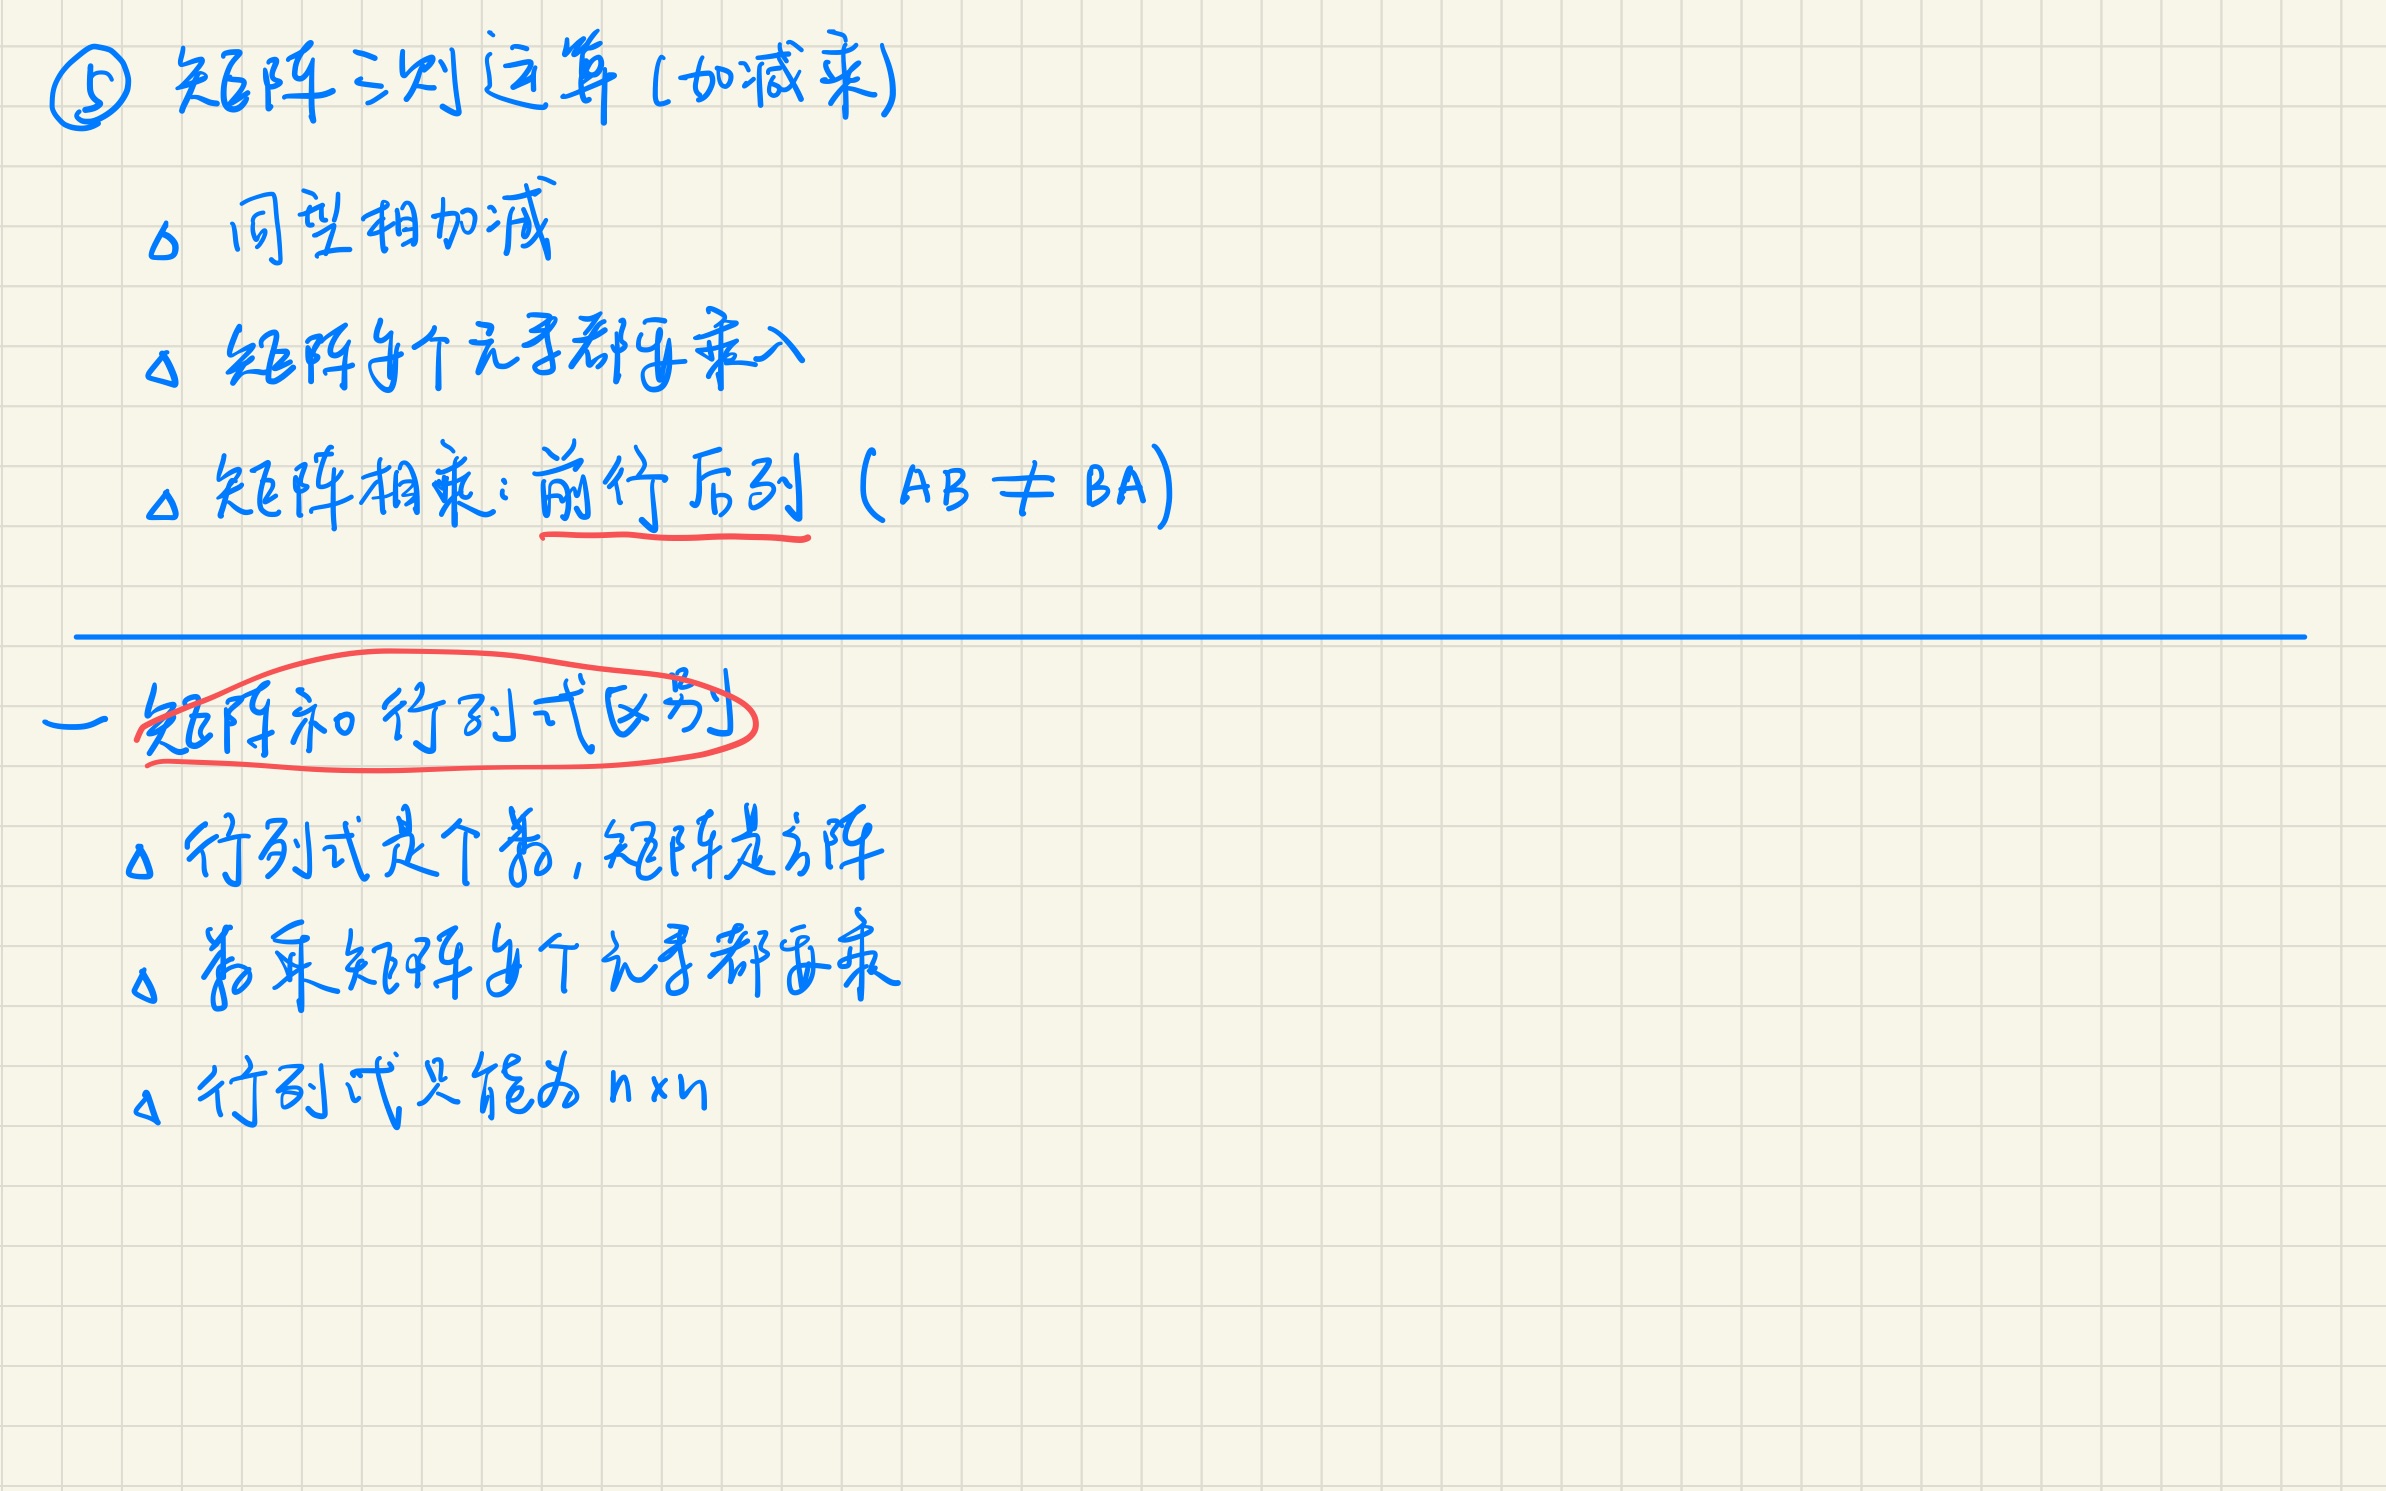 ⑤ 矩阵三则运算(加减乘)
△ 同型相加减
△ 矩阵每个元素都要乘入
△ 矩阵相乘:前行后列 (AB ≠ BA)
一 矩阵和行列式区别
△ 行列式是个数,矩阵是方阵
△ 数乘矩阵每个元素都要乘
△ 行列式只能为 n×n